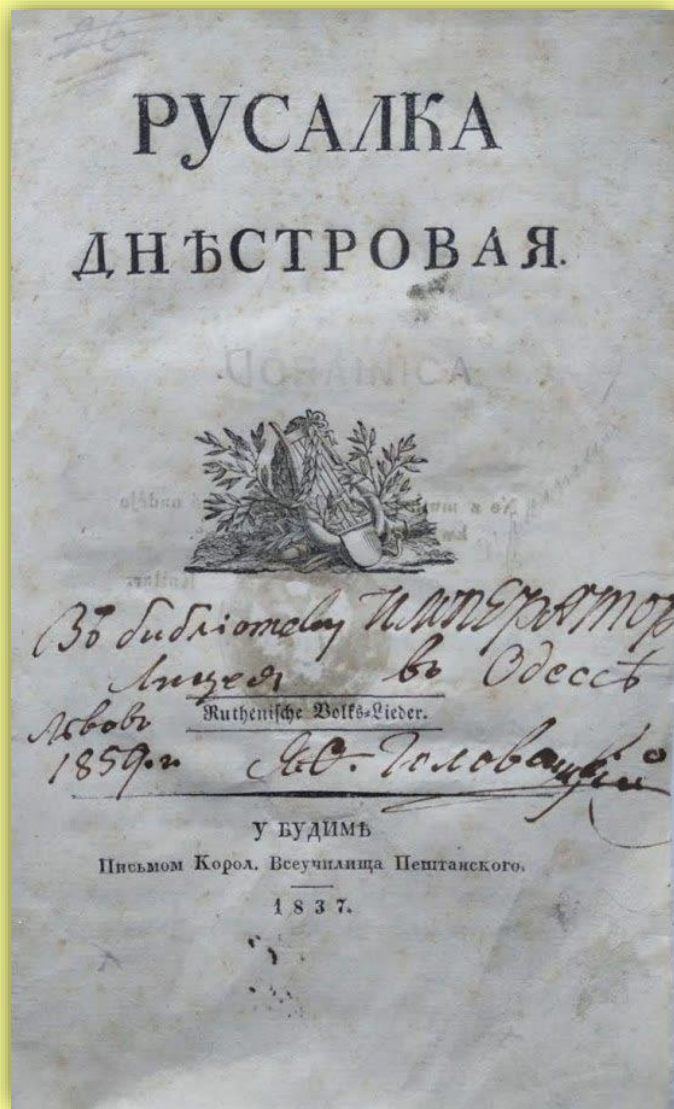 РУСАЛКА
ДНѢСТРОВАЯ.
Въ библіотеку ИМПЕРАТОР
Лицея въ Одессѣ
Ruthenische Volks-Lieder.
Львовъ
1859. г. Я.Ѳ. Головацкій
У БУДИМѢ
Письмом Корол. Всеучилища Пештанского.
1837.